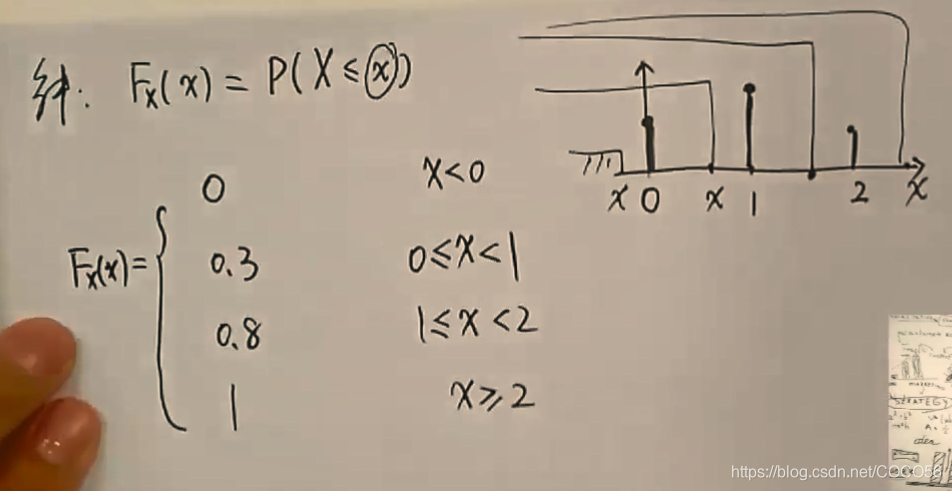 解: Fx(x) = P(X ≤ x)
0 x<0
Fx(x)= { 0.3 0≤x<1
0.8 1≤x<2
1 x≥2
x 0 x 1 2 x
STRATEGY
https://blog.csdn.net/COCO56